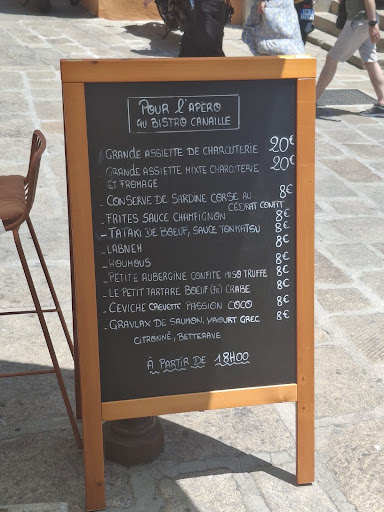 Pour l'apéro
au Bistro Canaille
Grande assiette de charcuterie 20€
Grande assiette mixte charcuterie 20€
et fromage
Conserve de sardine corse au 8€
cédrat confit
Frites sauce champignon 8€
Tataki de boeuf, sauce tonkatsu 8€
Labneh 8€
Houmous 8€
Petite aubergine confite miso truffe 8€
Le petit tartare boeuf crabe 8€
Ceviche crevette passion coco 8€
Gravlax de saumon, yaourt grec 8€
citronné, betterave
À partir de 18h00